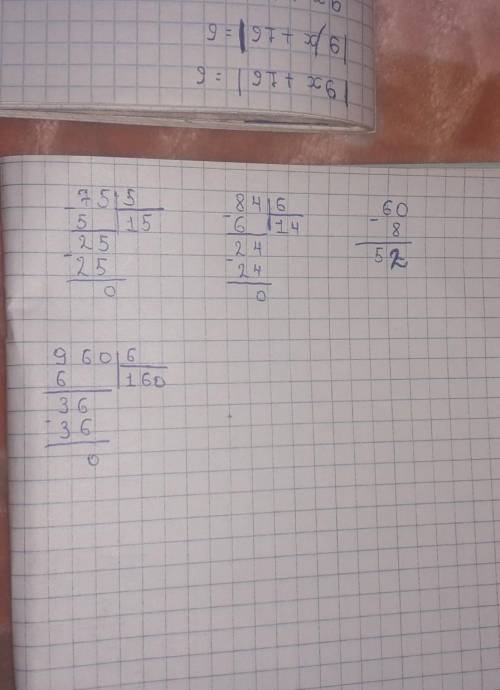 75|5
5 |15
25
-25
0
84|6
-6 |14
24
-24
0
60
-8
52
960|6
6 |160
36
-36
0